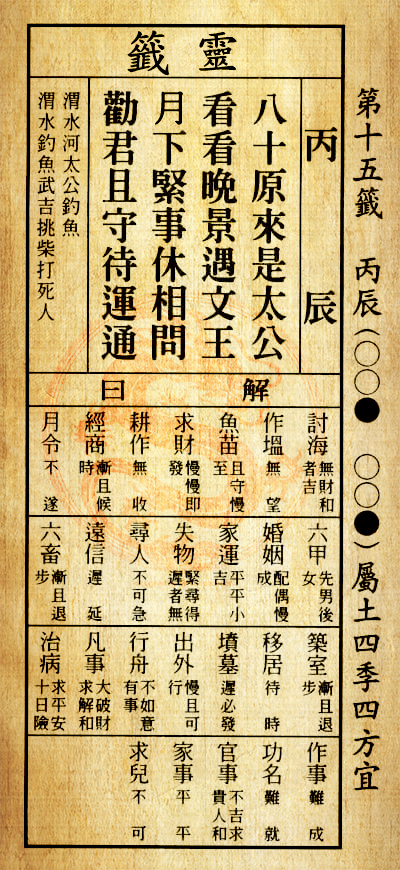 第十五籤　丙辰(○○●　○○●)屬土四季四方宜
靈籤
丙辰
八十原來是太公
看看晚景遇文王
月下緊事休相問
勸君且守待運通
渭水河太公釣魚
渭水釣魚武吉挑柴打死人
解曰
討海　無財和者吉
作塭　無望
魚苗　且守慢至
求財　慢慢即發
耕作　無收
經商　漸且候時
月令　不遂
六甲　先男後女
婚姻　配偶慢成
家運　平平小吉
失物　緊尋得遲者無
尋人　不可急
遠信　遲延
六畜　漸且退步
築室　漸且退步
移居　待時
墳墓　遲必發
出外　慢且可行
行舟　不如意有事
凡事　大破財求解和
治病　求平安十日險
作事　難成
功名　難就
官事　不吉求貴人和
家事　平平
求兒　不可